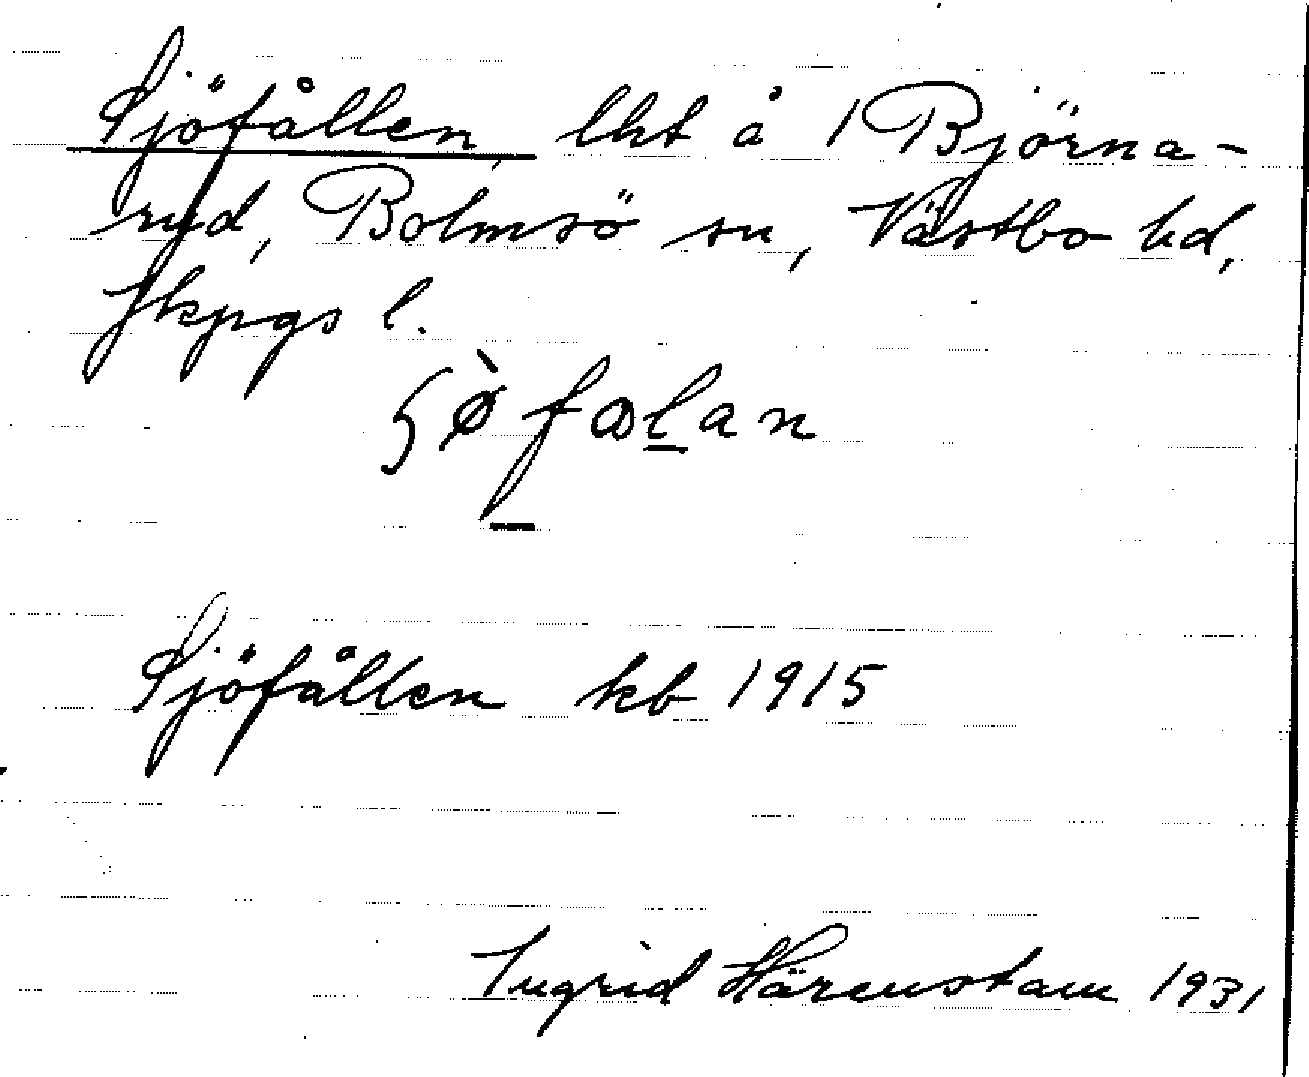 Sjöfållen, lht å 1 Björna-
ryd, Bolmsö sn, Västbo hd,
Jkpgs l.
Sjöfållen kb 1915
Ingrid Härenstam 1931